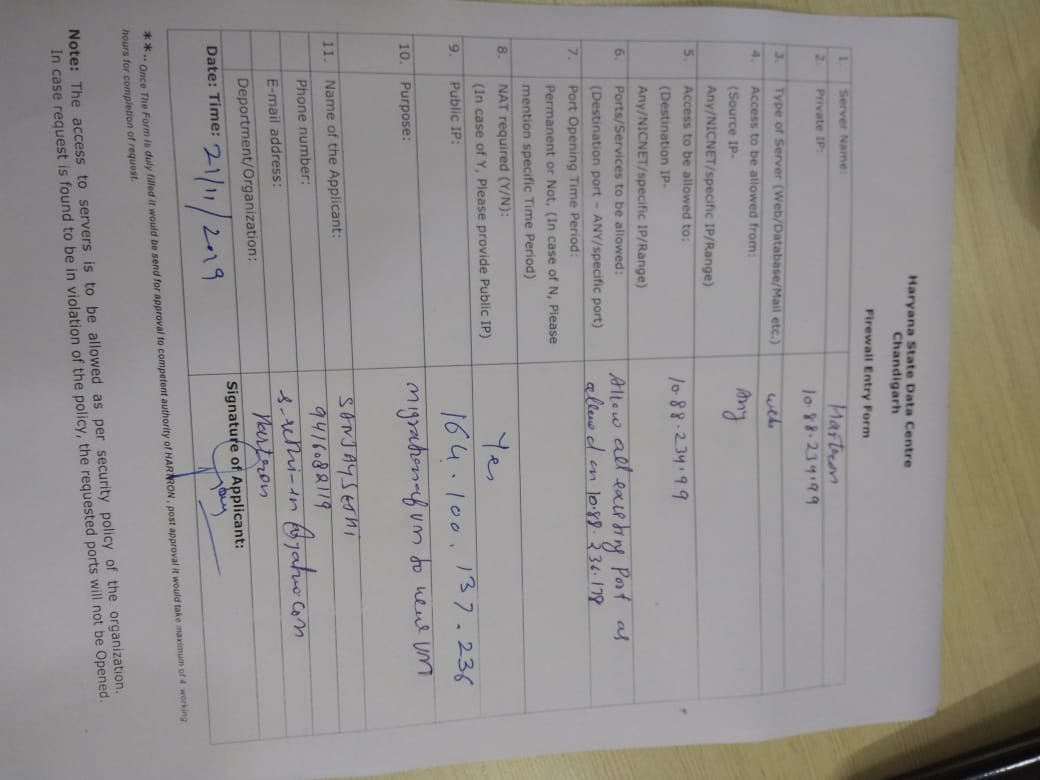 Haryana State Data Centre
Chandigarh
Firewall Entry Form
1. Server Name: Hartron
2. Private IP: 10.88.234.99
3. Type of Server (Web/Database/Mail etc.) web
4. Access to be allowed from: Any
(Source IP-
Any/NICNET/specific IP/Range)
5. Access to be allowed to: 10.88.234.99
(Destination IP-
Any/NICNET/specific IP/Range)
6. Ports/Services to be allowed: Allow all existing Port as
(Destination port – ANY/specific port) allowed on 10.88.236.178
7. Port Opening Time Period:
Permanent or Not, (In case of N, Please
mention specific Time Period)
8. NAT required (Y/N): Yes
(In case of Y, Please provide Public IP)
9. Public IP: 164.100.137.236
10. Purpose: migration of VM to new VM
11. Name of the Applicant: SANJAY SETHI
Phone number: 9416082119
E-mail address:
Deportment/Organization: Hartron
Date: Time: 21/11/2019 Signature of Applicant:
**** Once The Form is duly filled it would be send for approval to competent authority of HARTRON, post approval it would take maximum of 4 working
hours for completion of request.
Note: The access to servers is to be allowed as per security policy of the organization.
In case request is found to be in violation of the policy, the requested ports will not be Opened.